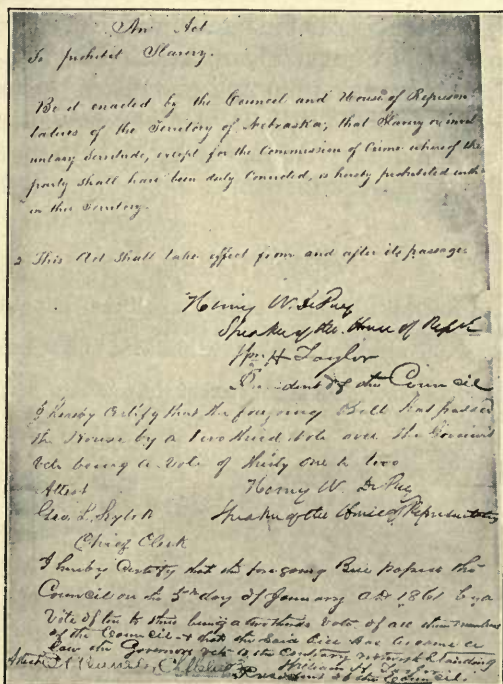 An Act
To prohibit Slavery.
Be it enacted by the Council and House of Represen-
tatives of the Territory of Nebraska, that Slavery or invol-
untary Servitude, except for the Commission of Crime whereof the
party shall have been duly Convicted, is hereby prohibited with-
in this Territory.
2 This Act shall take effect from and after its passage.
Henry W. De Puy
Speaker of the House of
Wm H Taylor
President of the Council
I hereby Certify that the foregoing Bill has passed
the House by a two third vote over the Governor's
veto being a vote of thirty one to two
Attest
Henry W. De Puy
Geo. L.
Speaker of the House of Representatives
Chief Clerk
I hereby Certify that the foregoing Bill passed the
Council on the 5th day of January AD 1861 by a
vote of ten to three being a two thirds vote of all the members
of the Council & that the said Bill has become a
law the Governors veto to the Contrary notwithstanding
Attest
William H Taylor
President of the Council